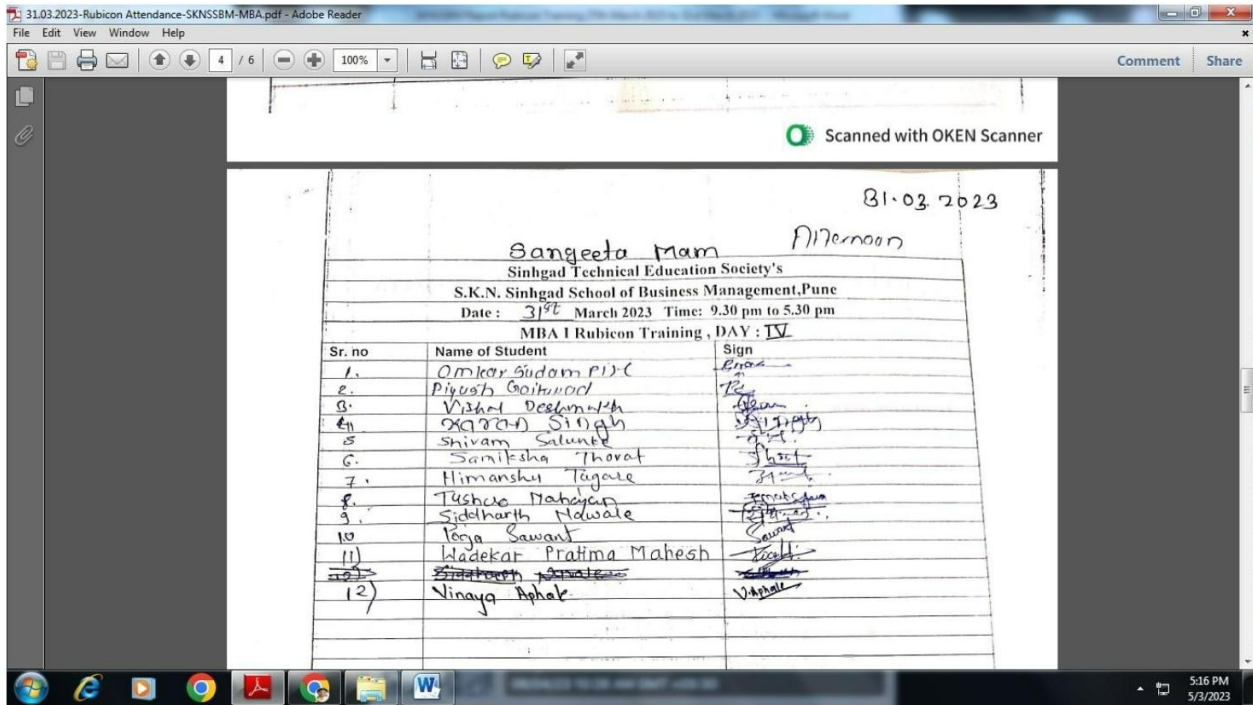 31.03.2023-Rubicon Attendance-SKNSSBM-MBA.pdf - Adobe Reader
File Edit View Window Help
4 / 6 100% Comment Share
Scanned with OKEN Scanner
31.03.2023
Afternoon
Sangeeta Mam
Sinhgad Technical Education Society's
S.K.N. Sinhgad School of Business Management,Pune
Date : 31st March 2023 Time: 9.30 pm to 5.30 pm
MBA I Rubicon Training , DAY : IV
Sr. no Name of Student Sign
1. Omkar Sudam
2. Piyush
3. Vishal Deshmukh
4) Karan Singh
5 Shivam Salunke
6. Samiksha Thorat
7. Himanshu Tagare
8. Mahajan
9. Siddharth Nawale
10 Pooja Sawant Sawant
11) Wadekar Pratima Mahesh
12) Vinaya Aphale V.Aphale
5:16 PM
5/3/2023